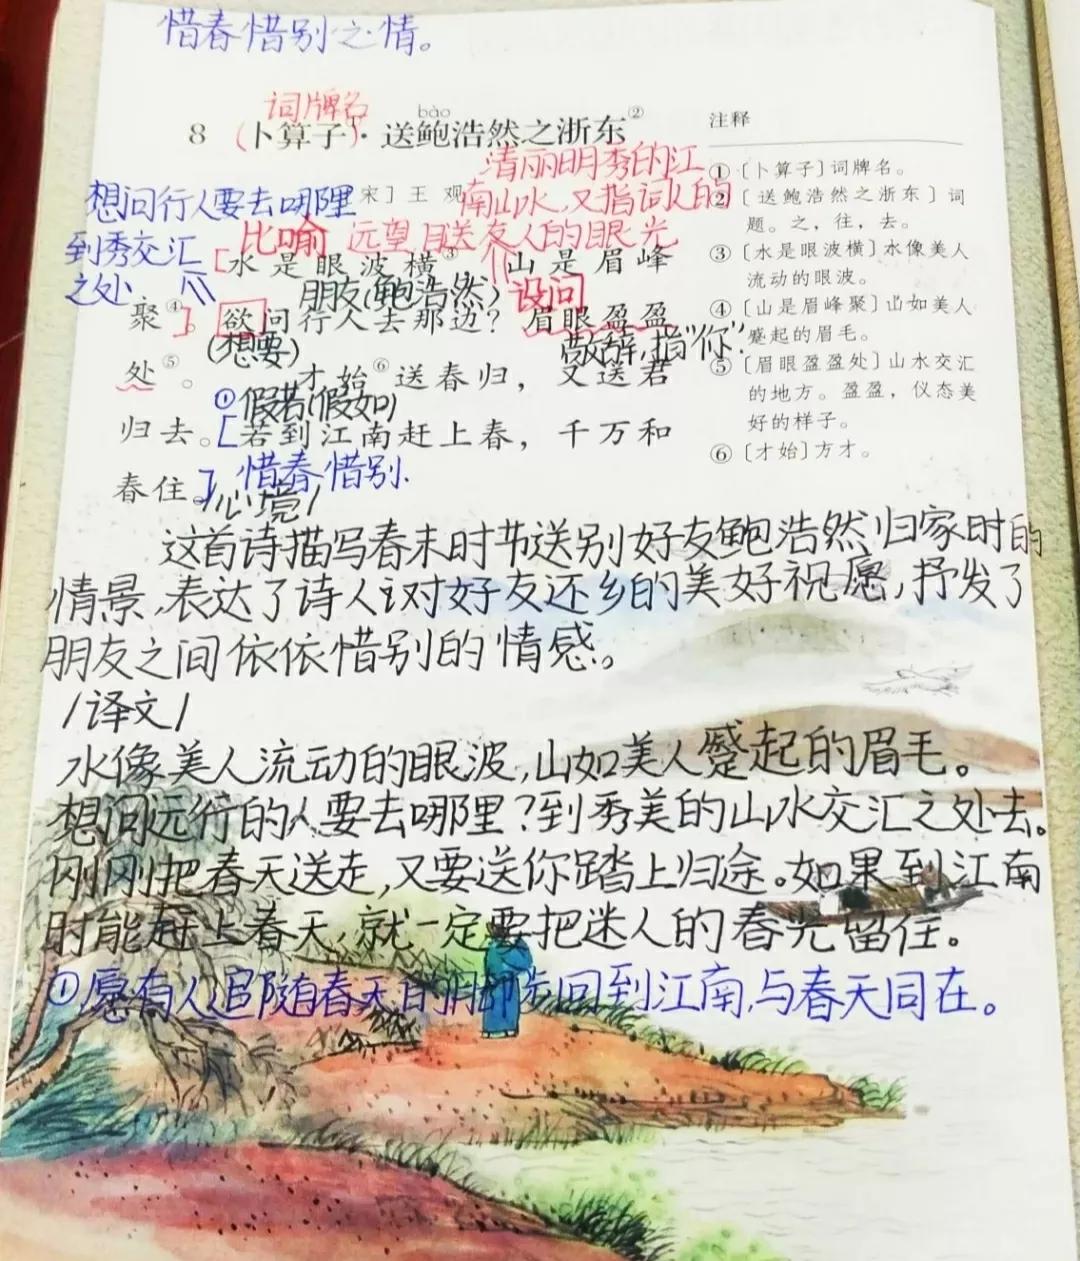 惜春惜别之情。
词牌名
bào
8 (卜算子)·送鲍浩然之浙东②
清丽明秀的江
想问行人要去哪里
宋］王 观
南山水,又指词人的
到秀交汇
比喻 远望目送友人的眼光
之处
[水是眼波横③ 山是眉峰
朋友(鲍浩然) 设问
聚④]。欲问行人去那边？眉眼盈盈
(想要) 敬辞,指“你”.
处⑤。 才始⑥送春归，又送君
①假若(假如)
归去。[若到江南赶上春，千万和
惜春惜别.
春住。]
/心境/
这首诗描写春末时节送别好友鲍浩然归家时的
情景,表达了诗人对好友还乡的美好祝愿,抒发了
朋友之间依依惜别的情感。
/译文/
水像美人流动的眼波,山如美人蹙起的眉毛。
想问远行的人要去哪里?到秀美的山水交汇之处去。
刚刚把春天送走,又要送你踏上归途。如果到江南
时能赶上春天,就一定要把迷人的春光留住。
①愿有人追随春天的脚步回到江南,与春天同在。
注释
①〔卜算子〕词牌名。
②〔送鲍浩然之浙东〕词
题。之，往，去。
③〔水是眼波横〕水像美人
流动的眼波。
④〔山是眉峰聚〕山如美人
蹙起的眉毛。
⑤〔眉眼盈盈处〕山水交汇
的地方。盈盈，仪态美
好的样子。
⑥〔才始〕方才。